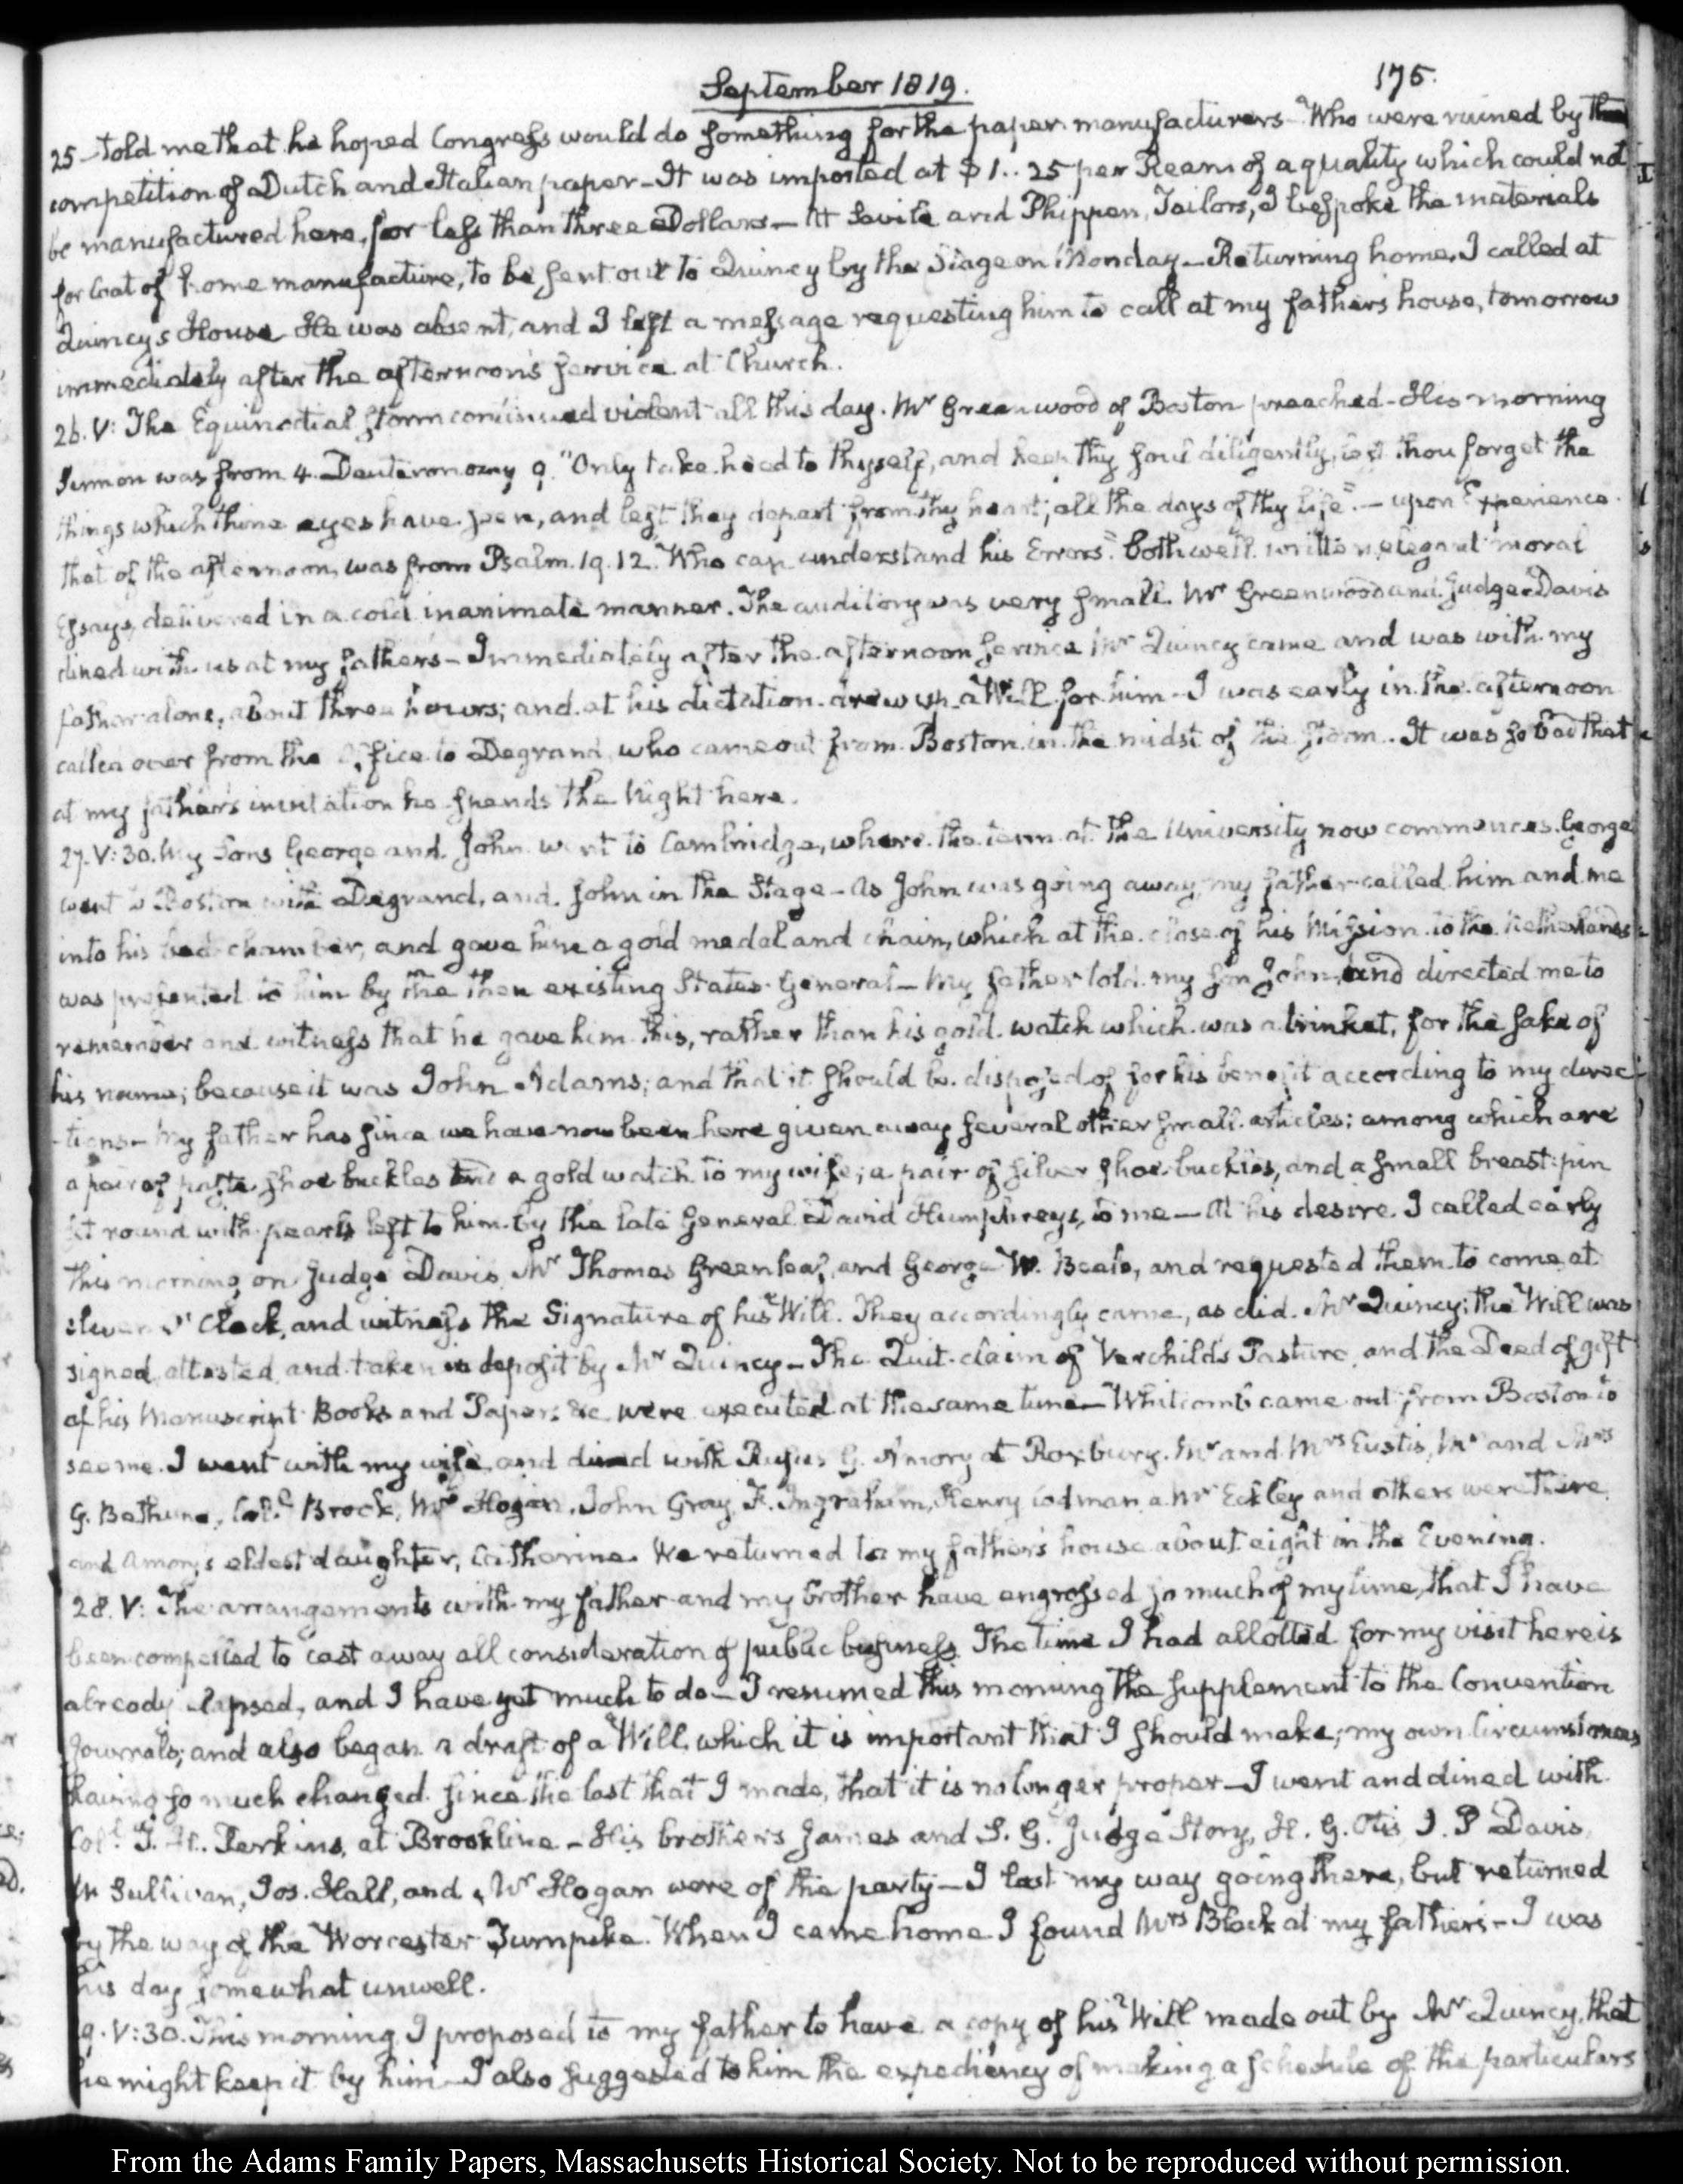 September 1819.
175.
25 – told me that he hoped Congress would do something for the paper manufacturers – Who were ruined by the
competition of Dutch and Italian paper – It was imported at $1..25 per Ream of a quality which could not
be manufactured here, for less than three Dollars – At Savile and Phippen, Tailors, I bespoke the materials
for Coat of home manufacture, to be sent out to Quincy by the Stage on Monday – Returning home, I called at
Quincy's House – He was absent, and I left a message requesting him to call at my father's house, tomorrow
immediately after the afternoon's service at Church.
26. V: The Equinoctial storm continued violent all this day. Mr Greenwood of Boston preached – His morning
Sermon was from 4. Deuteronomy 9. "Only take heed to thyself, and keep thy soul diligently, lest thou forget the
things which thine eyes have seen, and lest they depart from thy heart, all the days of thy life" – upon Experience.
that of the afternoon, was from Psalm. 19. 12. "Who can understand his Errors" both well written, elegant moral
Essays, delivered in a cold inanimate manner. The auditory was very small. Mr Greenwood and Judge Davis
dined with us at my father's – Immediately after the afternoon service Mr Quincy came and was with my
father alone, about three hours; and at his dictation drew up a Will for him – I was early in the afternoon
called over from the Office to Degrand, who came out from Boston in the midst of the storm. It was so bad that
at my father's invitation he spends the Night here.
27. V:30. My Sons George and John went to Cambridge, where the term at the University now commences. George
went to Boston with Degrand, and John in the Stage – As John was going away, my father called him and me
into his bed-chamber, and gave him a gold medal and chain, which at the close of his Mission to the Netherlands
was presented to him by the then existing States-General – My father told my son John, and directed me to
remember and witness that he gave him this, rather than his gold watch which was a trinket, for the sake of
his name; because it was John Adams; and that it should be disposed of for his benefit according to my direc-
-tions – My father has since we have now been here given away several other small articles: among which are
a pair of paste shoe buckles and a gold watch to my wife; a pair of silver shoe-buckles, and a small breast-pin
set round with pearls left to him by the late General David Humphreys, to me – At his desire I called early
this morning, on Judge Davis, Mr Thomas Greenleaf, and George W. Beale, and requested them to come at
eleven O'Clock, and witness the Signature of his Will. They accordingly came, as did Mr Quincy; the Will was
signed, attested, and taken in deposit by Mr Quincy – The Quit-claim of Verchild's Pasture, and the Deed of gift
of his Manuscript Books and Papers &c were executed at the same time – Whitcomb came out from Boston to
see me. I went with my wife and dined with Rufus G. Amory at Roxbury. Mr and Mrs Eustis, Mr and Mrs
G. Bethune, Brock, Hogan, John Gray, Ingraham, Henry Codman, a Mr Eckley and others were there
and Amory's eldest daughter, Catherine. We returned to my father's house about eight in the Evening.
28. V: The arrangements with my father and my brother have engrossed so much of my time, that I have
been compelled to cast away all consideration of public business. The time I had allotted for my visit here is
already elapsed, and I have yet much to do – I resumed this morning the supplement to the Convention
Journals; and also began a draft of a Will, which it is important that I should make; my own Circumstances
having so much changed since the last that I made, that it is no longer proper – I went and dined with
Coll T. H. Perkins, at Brookline – His brothers James and S. G. Judge Story, H. G. Otis I. P Davis,
Sullivan, Jos. Hall, and Mr Hogan were of the party – I lost my way going there, but returned
by the way of the Worcester Turnpike. When I came home I found Mrs Black at my father's – I was
this day somewhat unwell.
29. V:30. This morning I proposed to my father to have a copy of his Will made out by Mr Quincy, that
he might keep it by him – I also suggested to him the expediency of making a schedule of the particulars
From the Adams Family Papers, Massachusetts Historical Society. Not to be reproduced without permission.